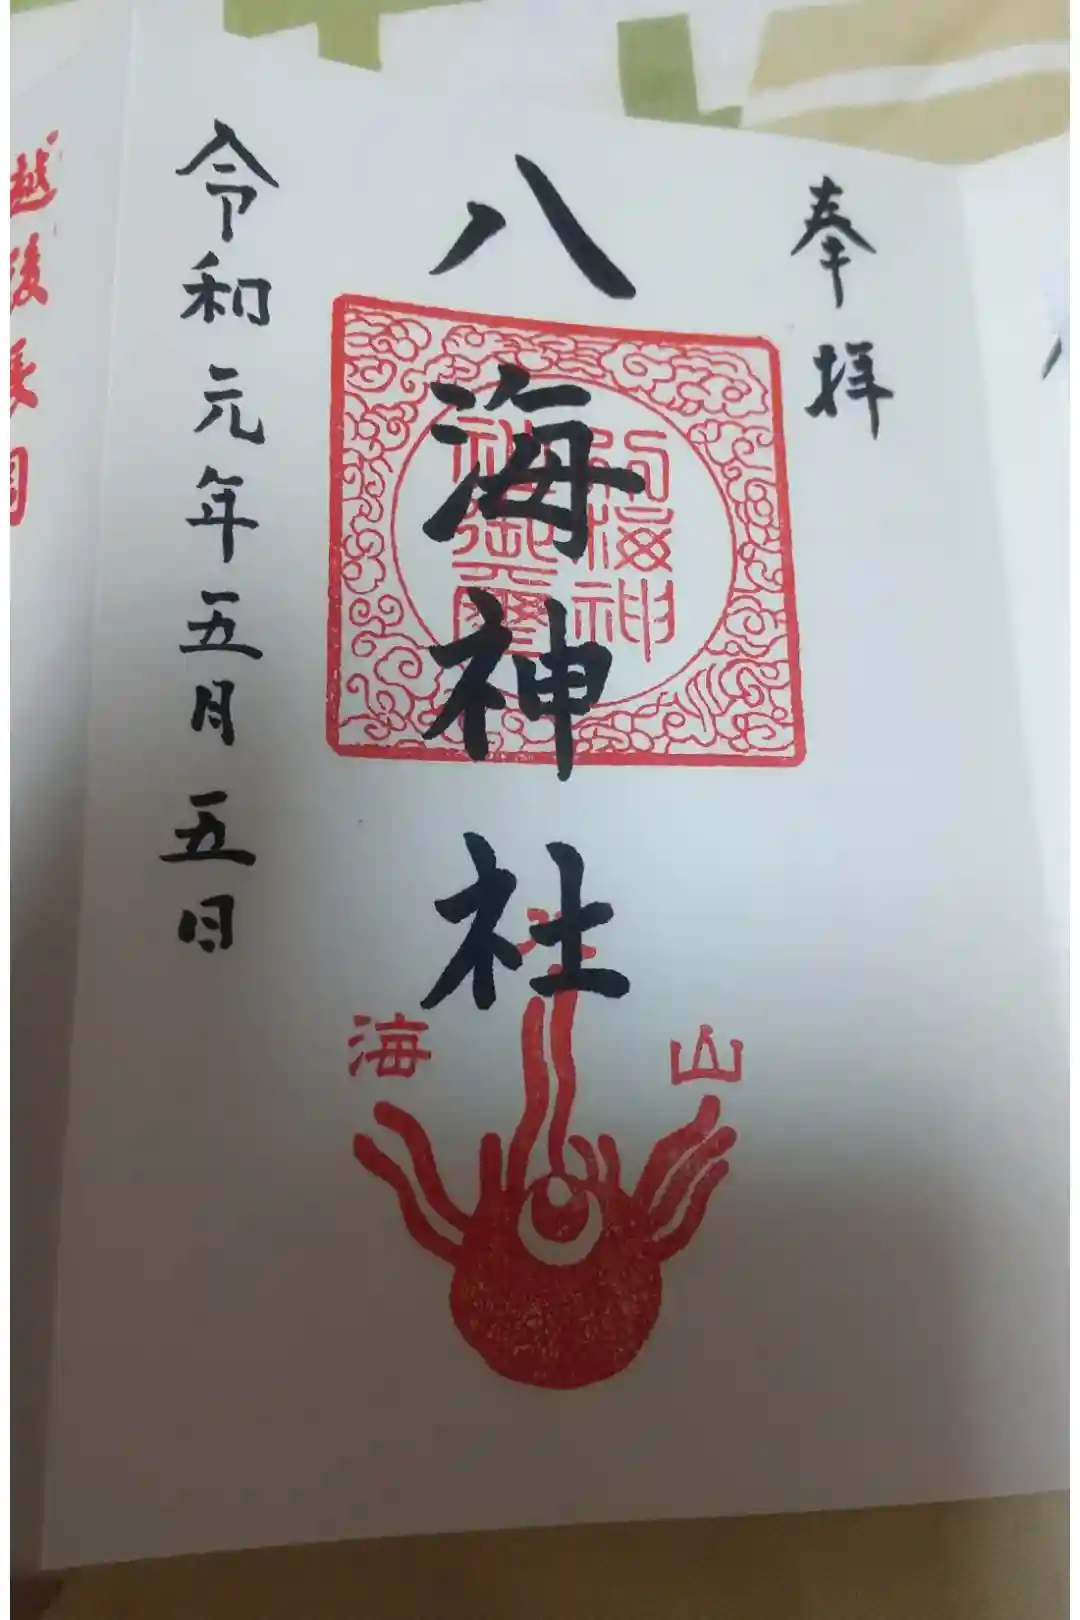 奉拝
八海神社
八海神
社御璽
八
海
山
令和元年五月五日
越後長岡